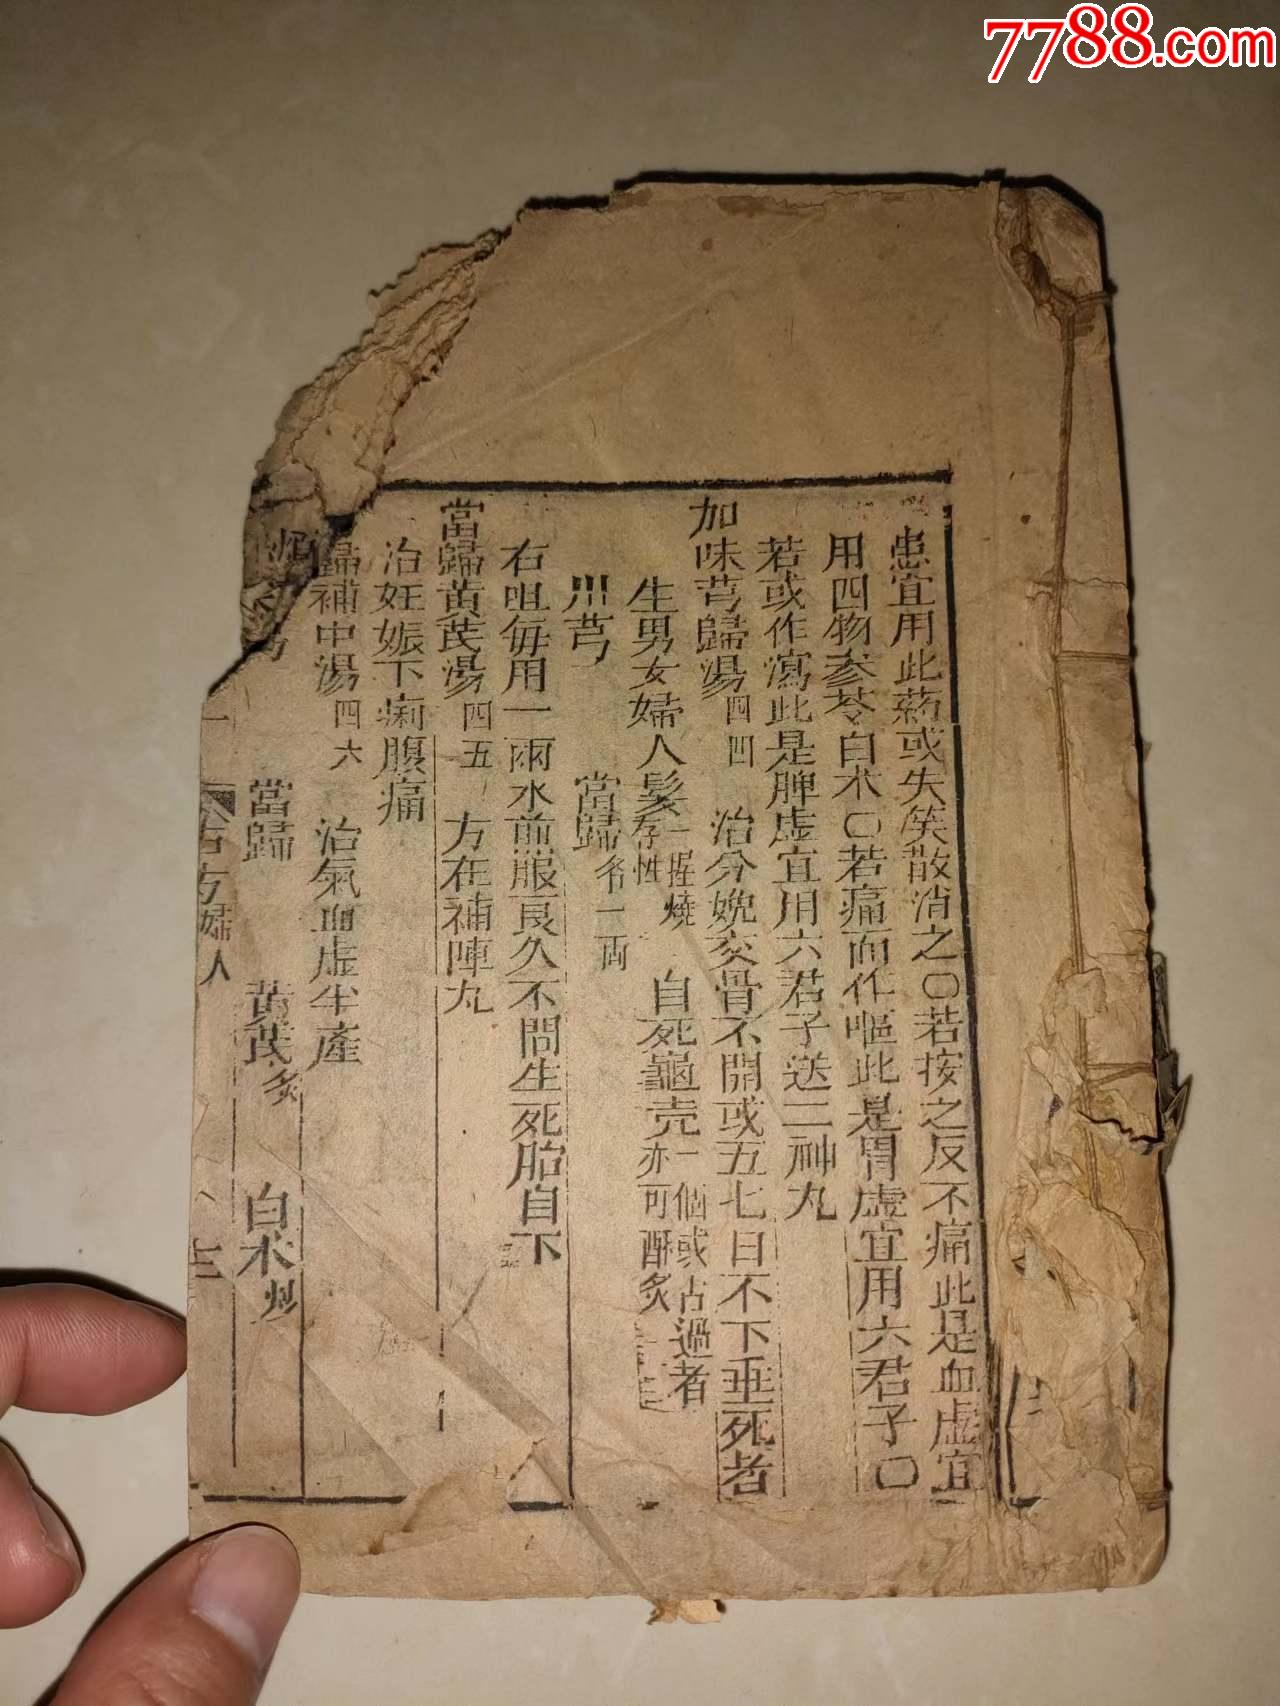 7788.com
患宜用此藥或失笑散消之〇若按之反不痛此是血虛宜
用四物參苓白朮〇若痛而作嘔此是胃虛宜用六君子〇
若或作瀉此是脾虛宜用六君子送二神丸
加味芎歸湯四四 治分娩交骨不開或五七日不下垂死者
生男女婦人髮一握燒存性 自死龜壳一個或占過者亦可酥炙
川芎 當歸各一兩
右咀每用一兩水煎服良久不問生死胎自下
當歸黃芪湯四五 方在補陣九
治妊娠下痢腹痛
歸補中湯四六 治氣血虛半產
當歸 黃芪炙 白朮炒
古方婦人